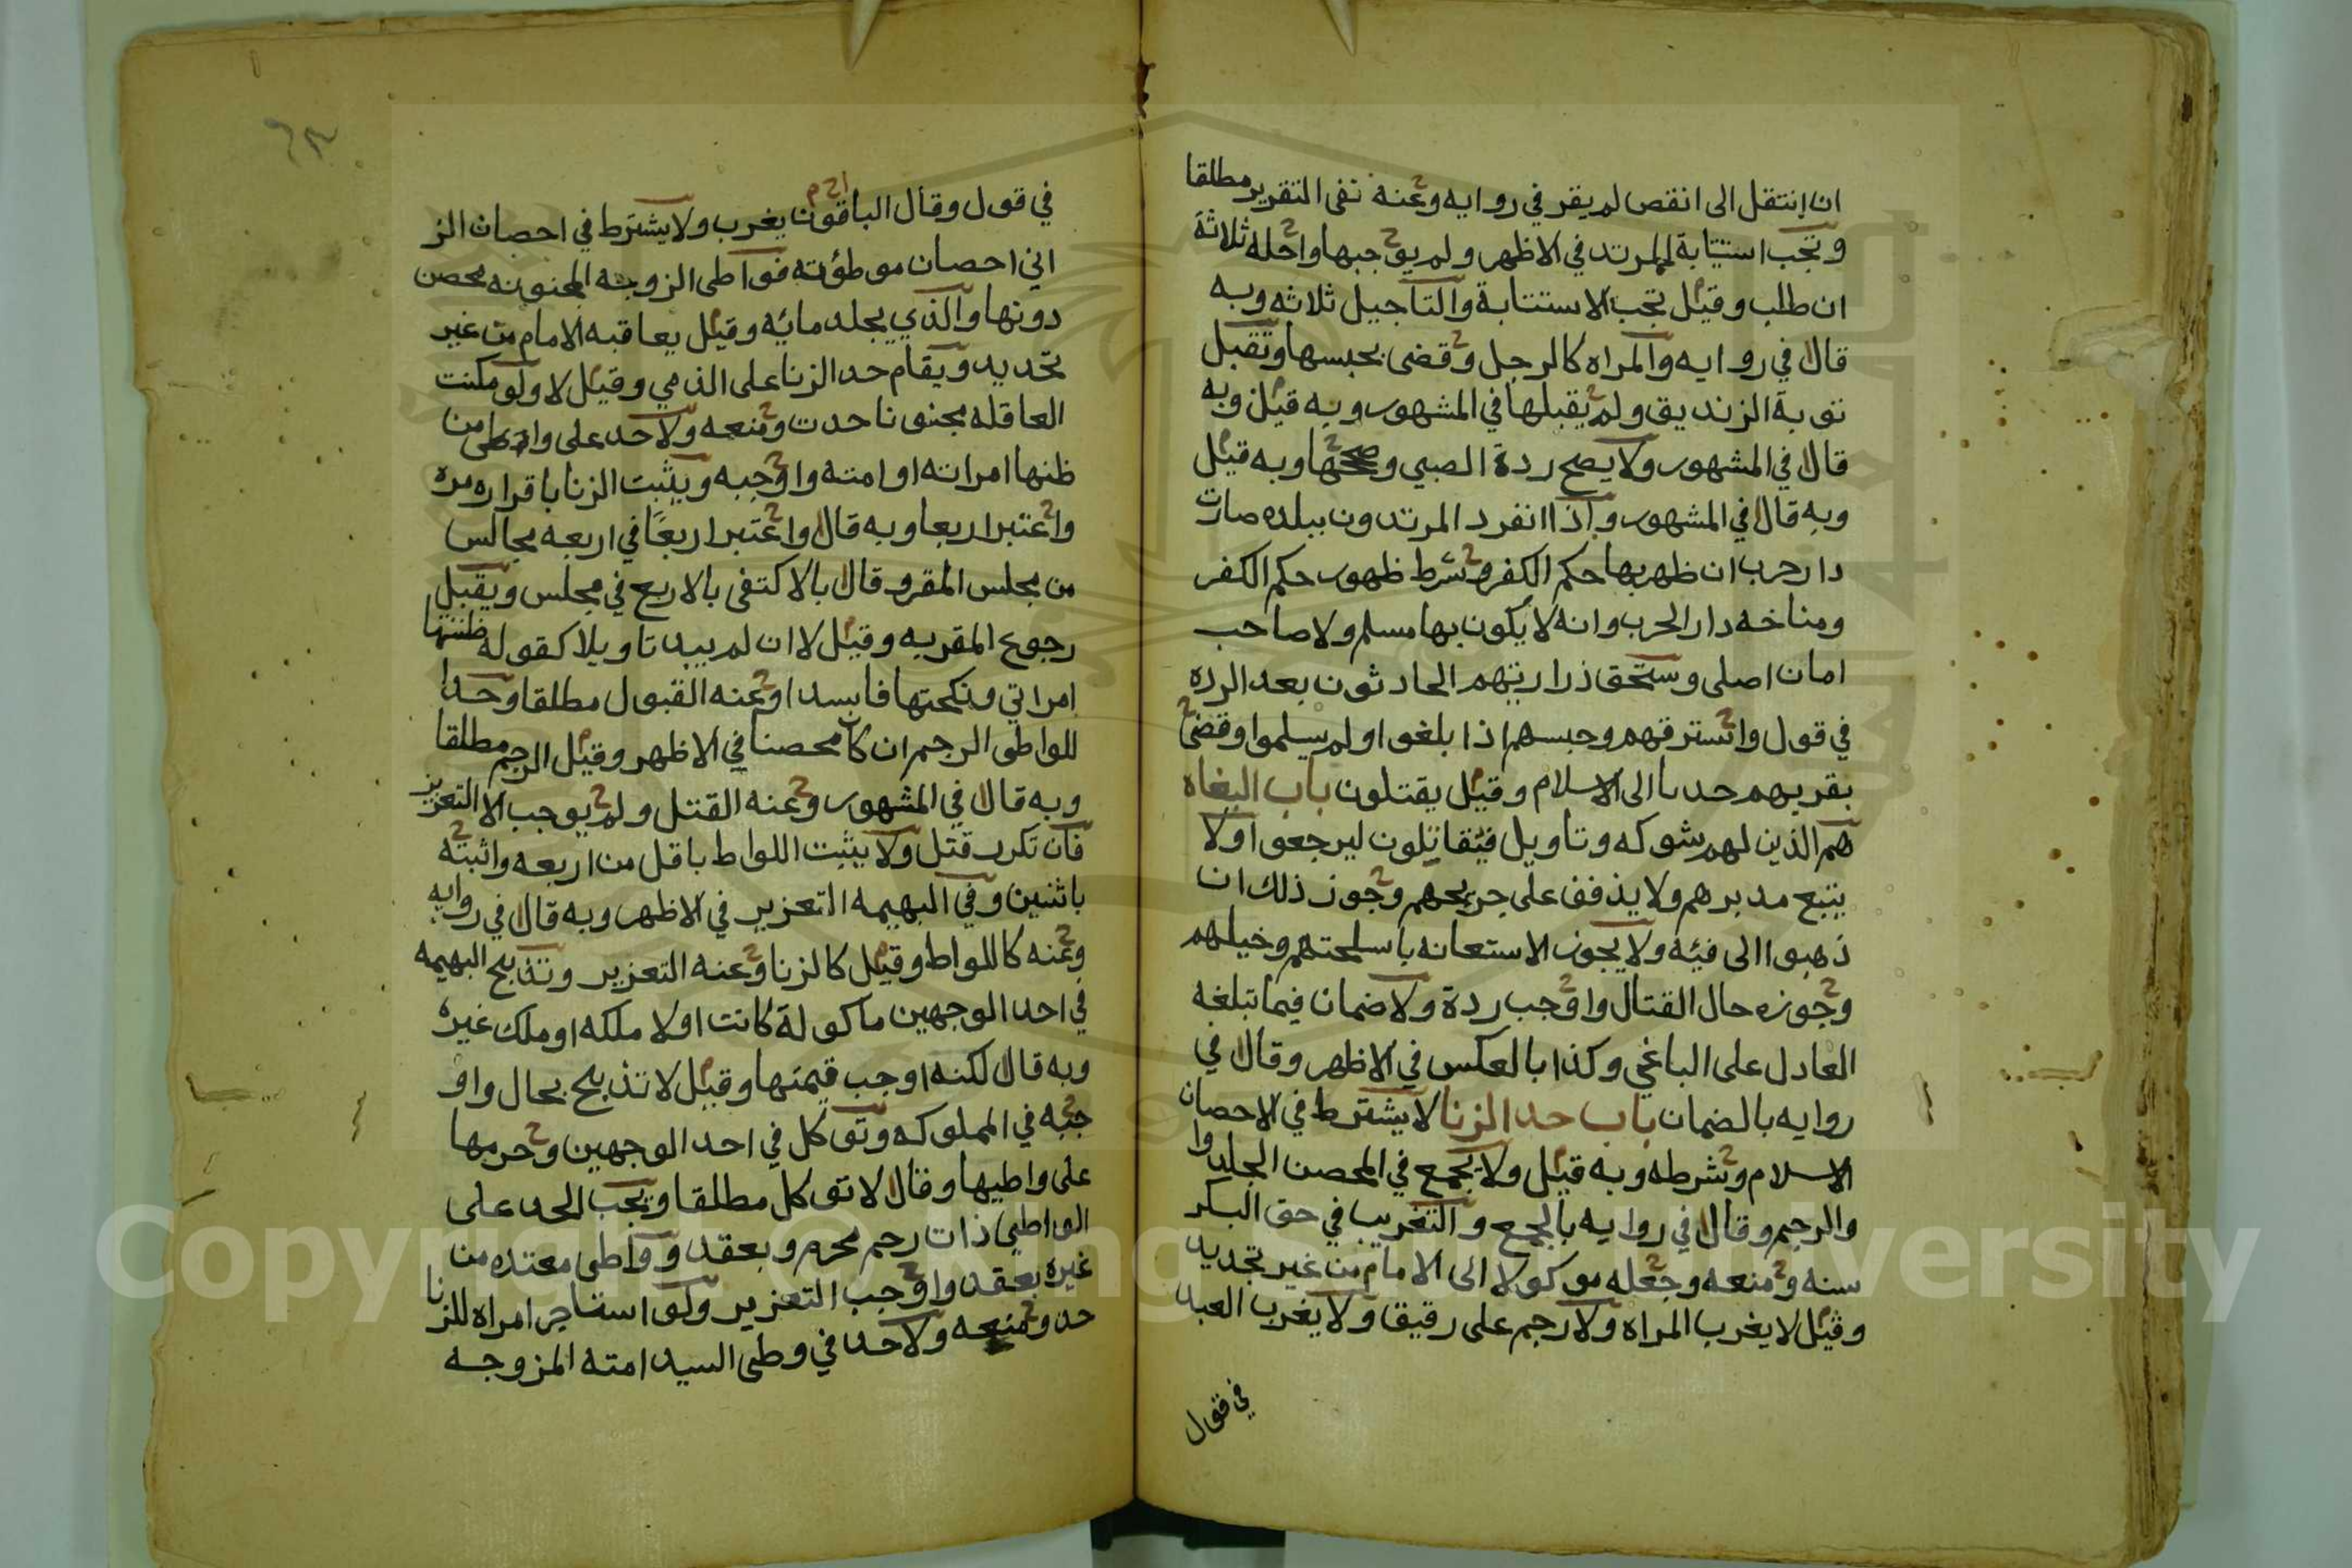 ان انتقل الى انقص لم يقر في روايه وعنه نفى التقرير مطلقا
وتجب استتابة المرتد في الاظهر ولم يوجبها واجله ثلاثة
ان طلب وقيل تجب الاستتابة والتاجيل ثلاثه وبه
قال في روايه والمراه كالرجل وقضى بحبسها وتقبل
توبة الزنديق ولم يقبلها في المشهور وبه قيل وبه
قال في المشهور ولا يصح ردة الصبي وصححها وبه قيل
وبه قال في المشهور واذا انفرد المرتدون ببلده صارت
دار حرب ان ظهر بها حكم الكفر وشرط ظهور حكم الكفر
ومناخه دار الحرب وانه لا يكون بها مسلم ولا صاحب
امان اصلى وستحق ذراريتهم الحادثون بعد الرده
في قول واسترقهم وحبسهم اذا بلغوا ولم يسلموا وقضى
بقريهم حدىا الى الاسلام وقيل يقتلون باب البغاه
هم الذين لهم شوكه وتاويل فيقاتلون ليرجعوا ولا
يتبع مدبرهم ولا يذفف على جريحهم وجوز ذلك ان
ذهبوا الى فيه ولا يجوز الاستعانه باسلحتهم وخيلهم
وجوزه حال القتال واوجب ردة ولا ضمان فيما تبلغه
العادل على الباغي وكذا بالعكس في الاظهر وقال في
روايه بالضمان باب حد الزنا لا يشترط في الاحصان
الاسلام وشرطه وبه قيل ولا يجمع في المحصن الجلد وا
والرجم وقال في روايه بالجمع والتغريب في حق البكر
سنه ومنعه وجعله موكولا الى الامام من غير تحديد
وقيل لا يغرب المراه ولا رجم على رقيق ولا يغرب العبد
في قول
٦٣
في قول وقال الباقون يغرب ولا يشترط في احصان الز
اني احصان موطؤته فواطى الزوجه المجنونه محصن
دونها والذي يجلد مائه وقيل يعاقبه الامام من غير
تحديد ويقام حد الزنا على الذمي وقيل لا ولو مكنت
العاقله مجنونا حدت ومنعه ولا حد على واطى من
ظنها امراته او امته واوجبه ويثبت الزنا باقراره مره
واعتبر اربعا وبه قال واعتبر اربعا في اربعه مجالس
من مجلس المقر وقال بالاكتفى بالاربع في مجلس ويقبل
رجوع المقر به وقيل لا ان لم يبد تاويلا كقوله ظننتها
امراتي ونكحتها فاسدا وعنه القبول مطلقا وحدا
للواطى الرجم ان كان محصنا في الاظهر وقيل الرجم مطلقا
وبه قال في المشهور وعنه القتل ولم يوجب الا التعزير
فان تكرر قتل ولا يثبت اللواط باقل من اربعه واثبته
باثنين وفي البهيمه التعزير في الاظهر وبه قال في روايه
وعنه كاللواط وقيل كالزنا وعنه التعزير وتذبح البهيمه
في احد الوجهين ماكولة كانت اولا ملكه او ملك غيره
وبه قال لكنه اوجب قيمتها وقيل لا تذبح بحال واو
جبه في المملوكه وتوكل في احد الوجهين وحرمها
على واطيها وقال لا توكل مطلقا ويجب الحد على
الواطي ذات رحم محرم وبعقد وواطى معتده من
غيره بعقد واوجب التعزير ولو استاجر امراه للزنا
حد ومنعه ولا حد في وطى السيد امته المزوجه
Copyright © King Saud University